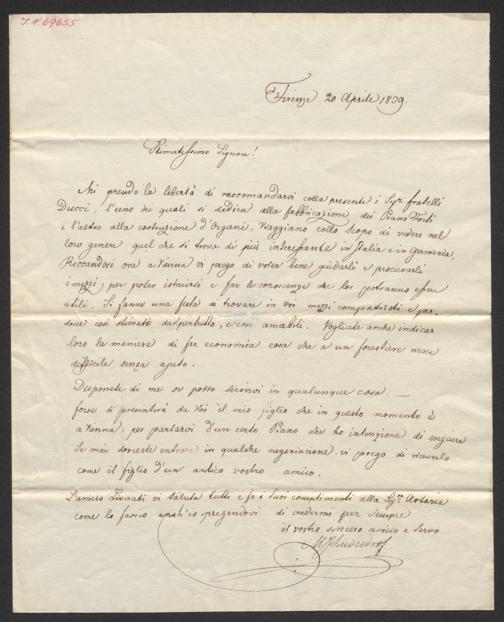 J. N. 69655
Firenze 20 Aprile 1839.
Stimatissimo Signore!
Mi prendo la libertà di raccomandarvi colla presente i Sgri fratelli
Ducci, l'uno dei quali si dedica alla fabbricazione dei Piano Forti
e l'altro alla costruzione d'Organi. Viaggiano collo scopo di vedere nel
loro genere quel che si trova di più interessante in Italia e in Germania.
Reccandosi ora a Vienna vi prego di voler bene guidarli e procurarli
i mezzi, per poter istruirsi e far le conoscenze che lor potranno essere
utili. Si fanno una festa di trovare in voi mezzi compatrioti e per-
sone così stimate dapertutto, e così amabili. Vogliate anche indicar
loro la maniera di far economia cosa che a un forestiere riesce
difficile senza ajuto.
Disponete di me se posso servirvi in qualunque cosa. —
forse si presenterà da Voi il mio figlio che in questo momento è
a Vienna, per parlarvi d'un certo Piano che ho intenzione di eseguire
Se mai doveste entrare in qualche negoziazione, vi prego di riceverlo
come il figlio d'un antico vostro amico.
L'amico vi saluta tutti e fa i Suoi complimenti alla Sigra Artaria
come lo faccio anch'io pregandovi di credermi per sempre
il vostro sincero amico e servo